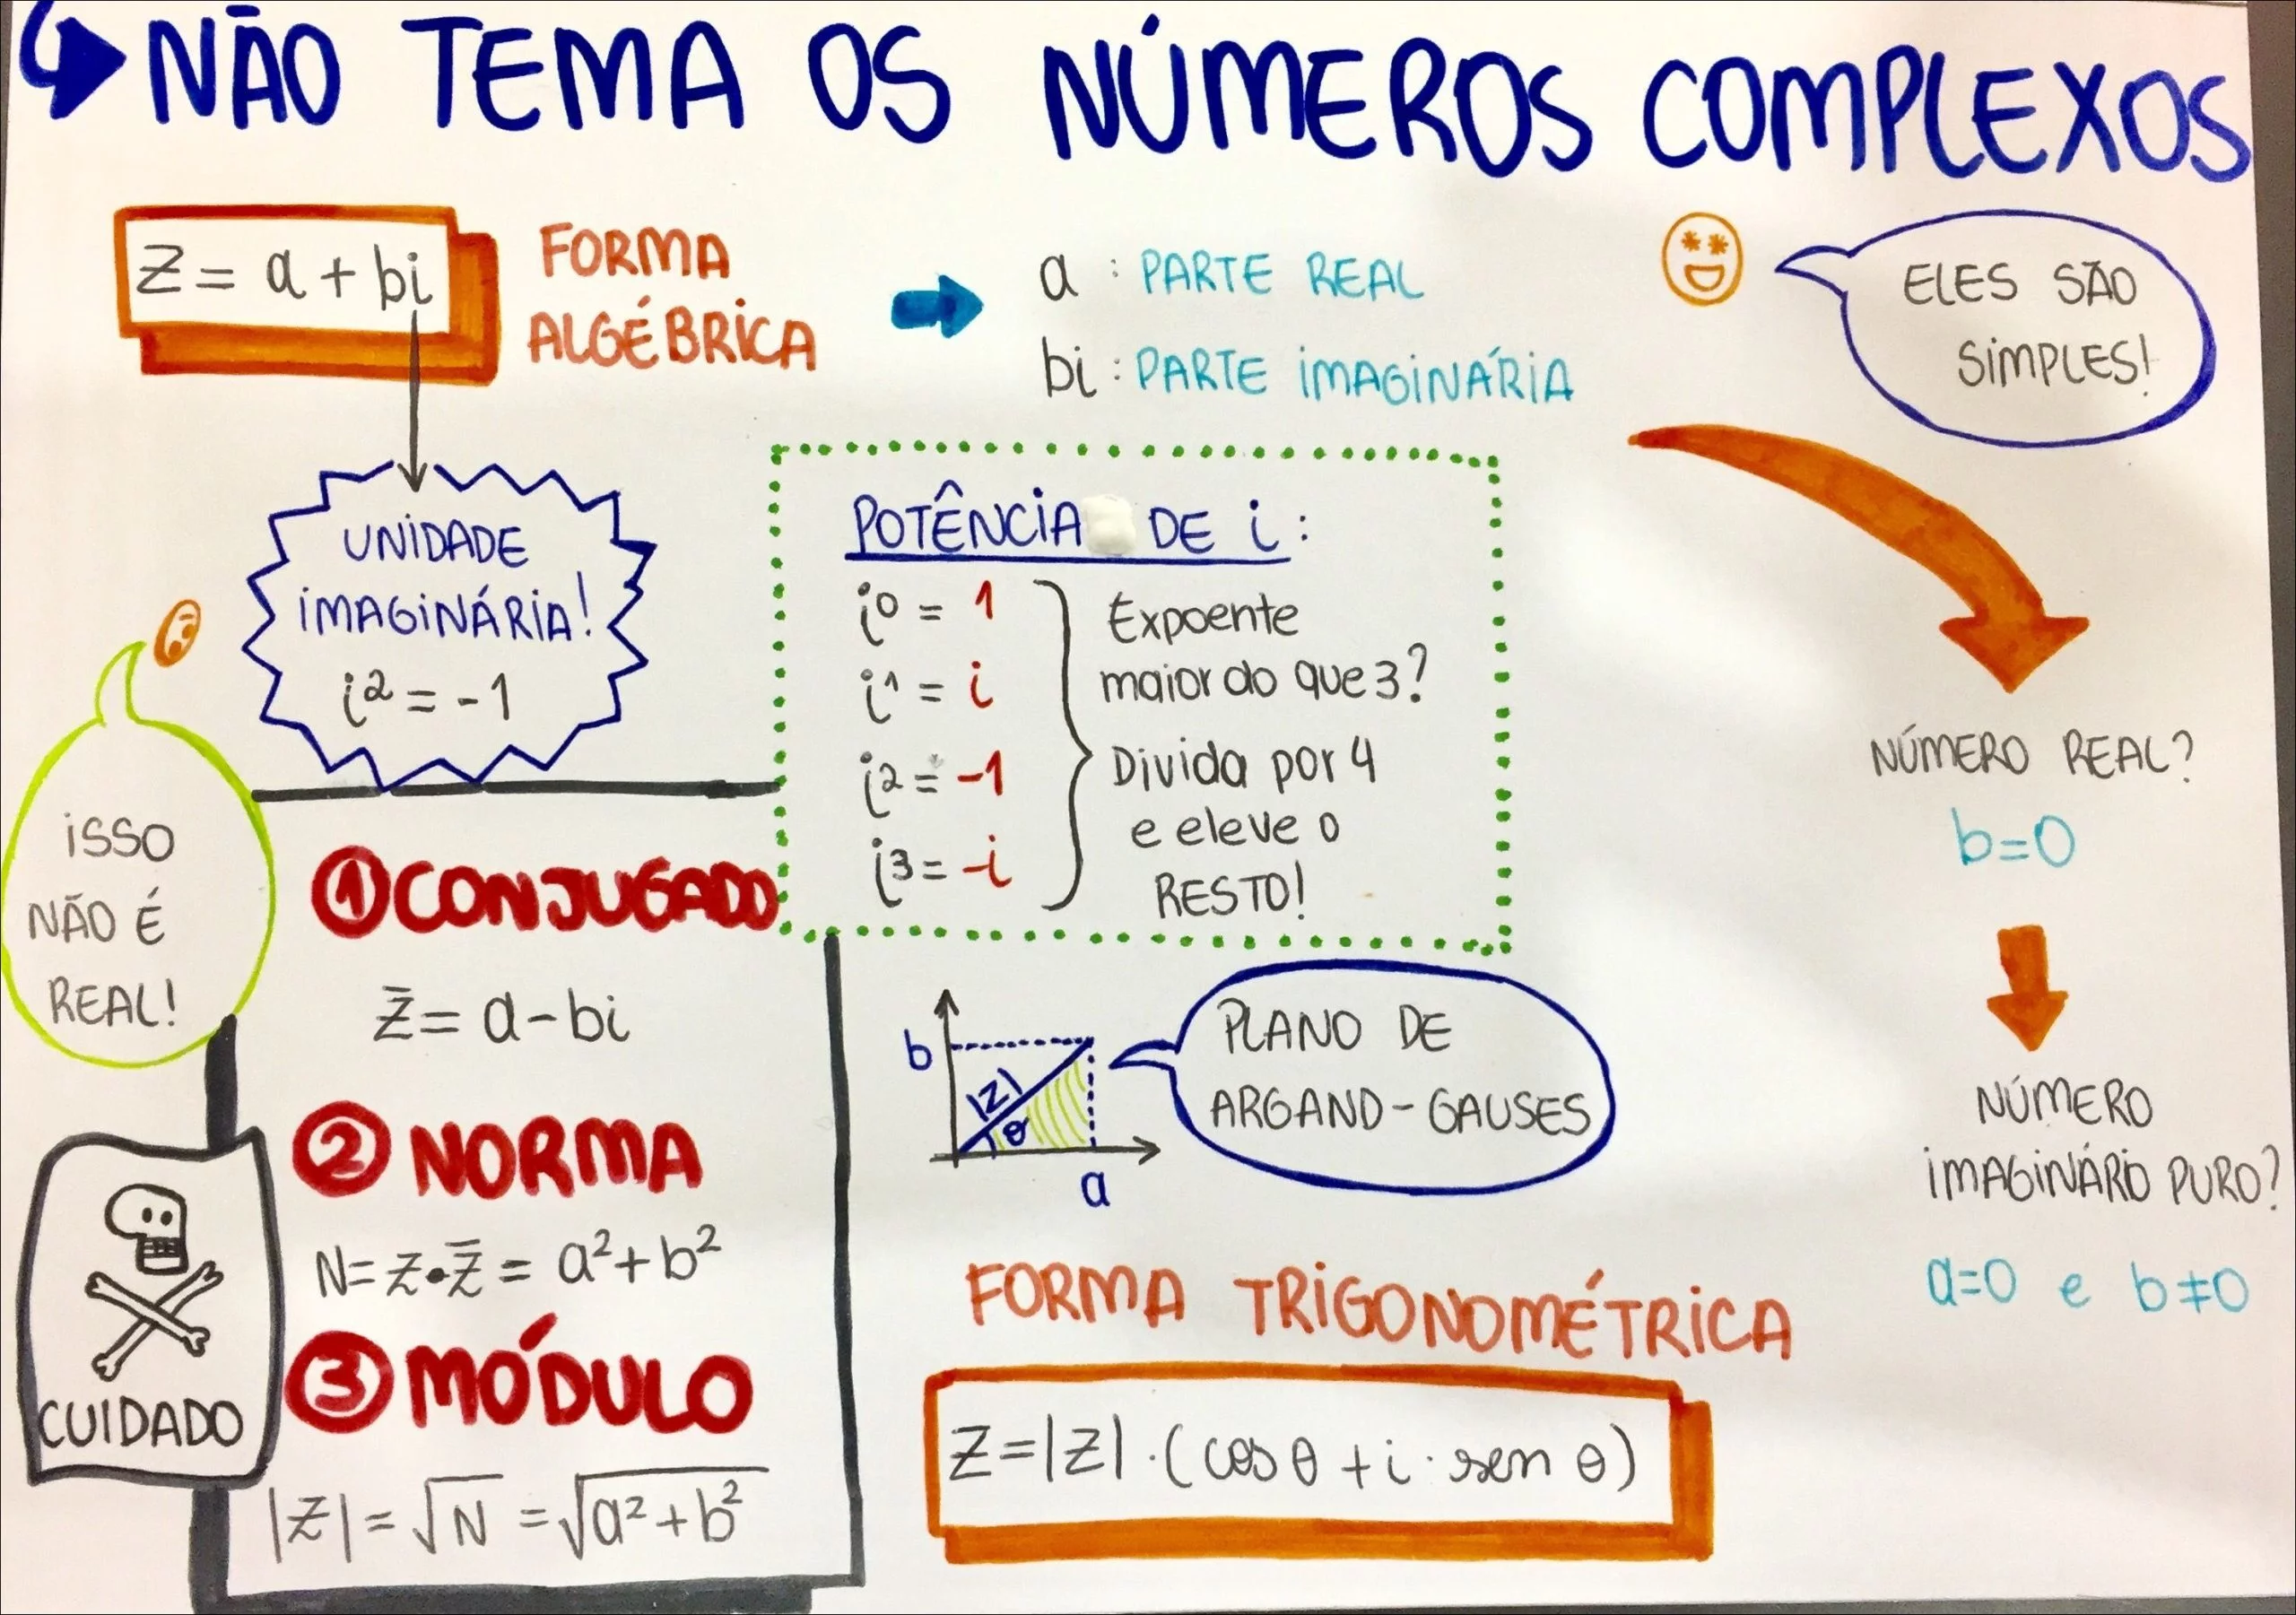 NÃO TEMA OS NÚMEROS COMPLEXOS
z = a + bi
FORMA
ALGÉBRICA
a : PARTE REAL
bi : PARTE IMAGINÁRIA
ELES SÃO
SIMPLES!
UNIDADE
IMAGINÁRIA!
i² = -1
ISSO
NÃO É
REAL!
POTÊNCIA DE i :
i⁰ = 1
i¹ = i
i² = -1
i³ = -i
Expoente
maior do que 3?
Divida por 4
e eleve o
RESTO!
NÚMERO REAL?
b=0
NÚMERO
IMAGINÁRIO PURO?
a=0 e b≠0
① CONJUGADO
z̄ = a - bi
② NORMA
N = z • z̄ = a² + b²
③ MÓDULO
|z| = √N = √(a² + b²)
CUIDADO
b
|z|
θ
a
PLANO DE
ARGAND-GAUSES
FORMA TRIGONOMÉTRICA
z = |z| · (cos θ + i · sen θ)